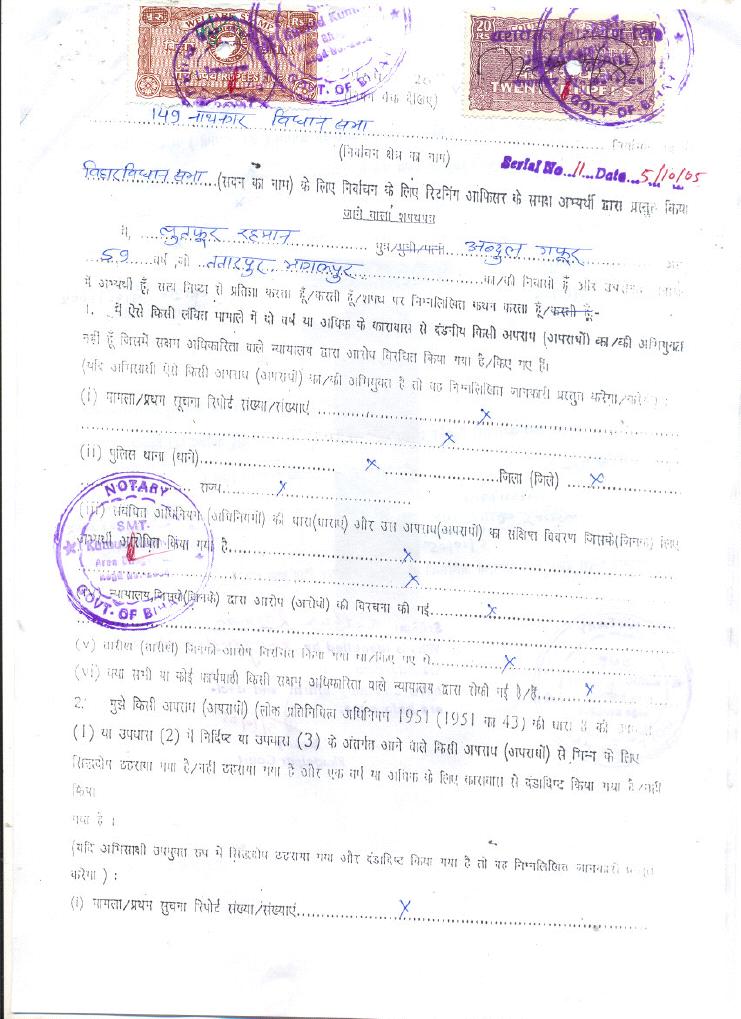 WELFARE STAMP
Rs 5
20
Rs
TWENTY RUPEES
GOVT. OF BIHAR
GOVT. OF BIHAR
149 नाथनगर विधान सभा
(निर्वाचन क्षेत्र का नाम)
Serial No. 11 Date 5/10/05
बिहार विधान सभा (सदन का नाम) के लिए निर्वाचन के लिए रिटर्निंग आफिसर के समक्ष अभ्यर्थी द्वारा प्रस्तुत किया
जाने वाला शपथपत्र
मैं, लुतफूर रहमान पुत्र/पुत्री/पत्नी अब्दुल गफूर
59 वर्ष, जो ततारपुर भागलपुर का/की निवासी हूँ और उपरोक्त
में अभ्यर्थी हूँ, सत्य निष्ठा से प्रतिज्ञा करता हूँ/करती हूँ/शपथ पर निम्नलिखित कथन करता हूँ/करती हूँ:-
1. मैं ऐसे किसी लंबित मामले में दो वर्ष या अधिक के कारावास से दंडनीय किसी अपराध (अपराधों) का/की अभियुक्त
नहीं हूँ जिसमें सक्षम अधिकारिता वाले न्यायालय द्वारा आरोप विरचित किया गया है/किए गए हैं।
(यदि अभिसाक्षी ऐसे किसी अपराध (अपराधों) का/की अभियुक्त है तो वह निम्नलिखित जानकारी प्रस्तुत करेगा/करेगी) :
(i) मामला/प्रथम सूचना रिपोर्ट संख्या/संख्याएं x
x
(ii) पुलिस थाना (थाने) x जिला (जिले) x
राज्य x
NOTARY
SMT.
GOVT. OF BIHAR
(iii) संबंधित अधिनियम (अधिनियमों) की धारा(धाराएं) और उस अपराध(अपराधों) का संक्षिप्त विवरण जिसके(जिनके) लिए
अभ्यर्थी आरोपित किया गया है x
x
न्यायालय, जिसके(जिनके) द्वारा आरोप (आरोपों) की विरचना की गई x
(v) तारीख (तारीखें) जिनको आरोप विरचित किया गया था/किए गए थे x
(vi) क्या सभी या कोई कार्यवाही किसी सक्षम अधिकारिता वाले न्यायालय द्वारा रोकी गई है/हैं x
2. मुझे किसी अपराध (अपराधों) (लोक प्रतिनिधित्व अधिनियम 1951 (1951 का 43) की धारा 8 की उपधारा
(1) या उपधारा (2) में निर्दिष्ट या उपधारा (3) के अंतर्गत आने वाले किसी अपराध (अपराधों) से भिन्न के लिए
सिद्धदोष ठहराया गया है/नहीं ठहराया गया है और एक वर्ष या अधिक के लिए कारावास से दंडादिष्ट किया गया है/नहीं
किया
गया है ।
(यदि अभिसाक्षी उपयुक्त रूप में सिद्धदोष ठहराया गया और दंडादिष्ट किया गया है तो वह निम्नलिखित जानकारी प्रस्तुत
करेगा ) :
(i) मामला/प्रथम सूचना रिपोर्ट संख्या/संख्याएं x